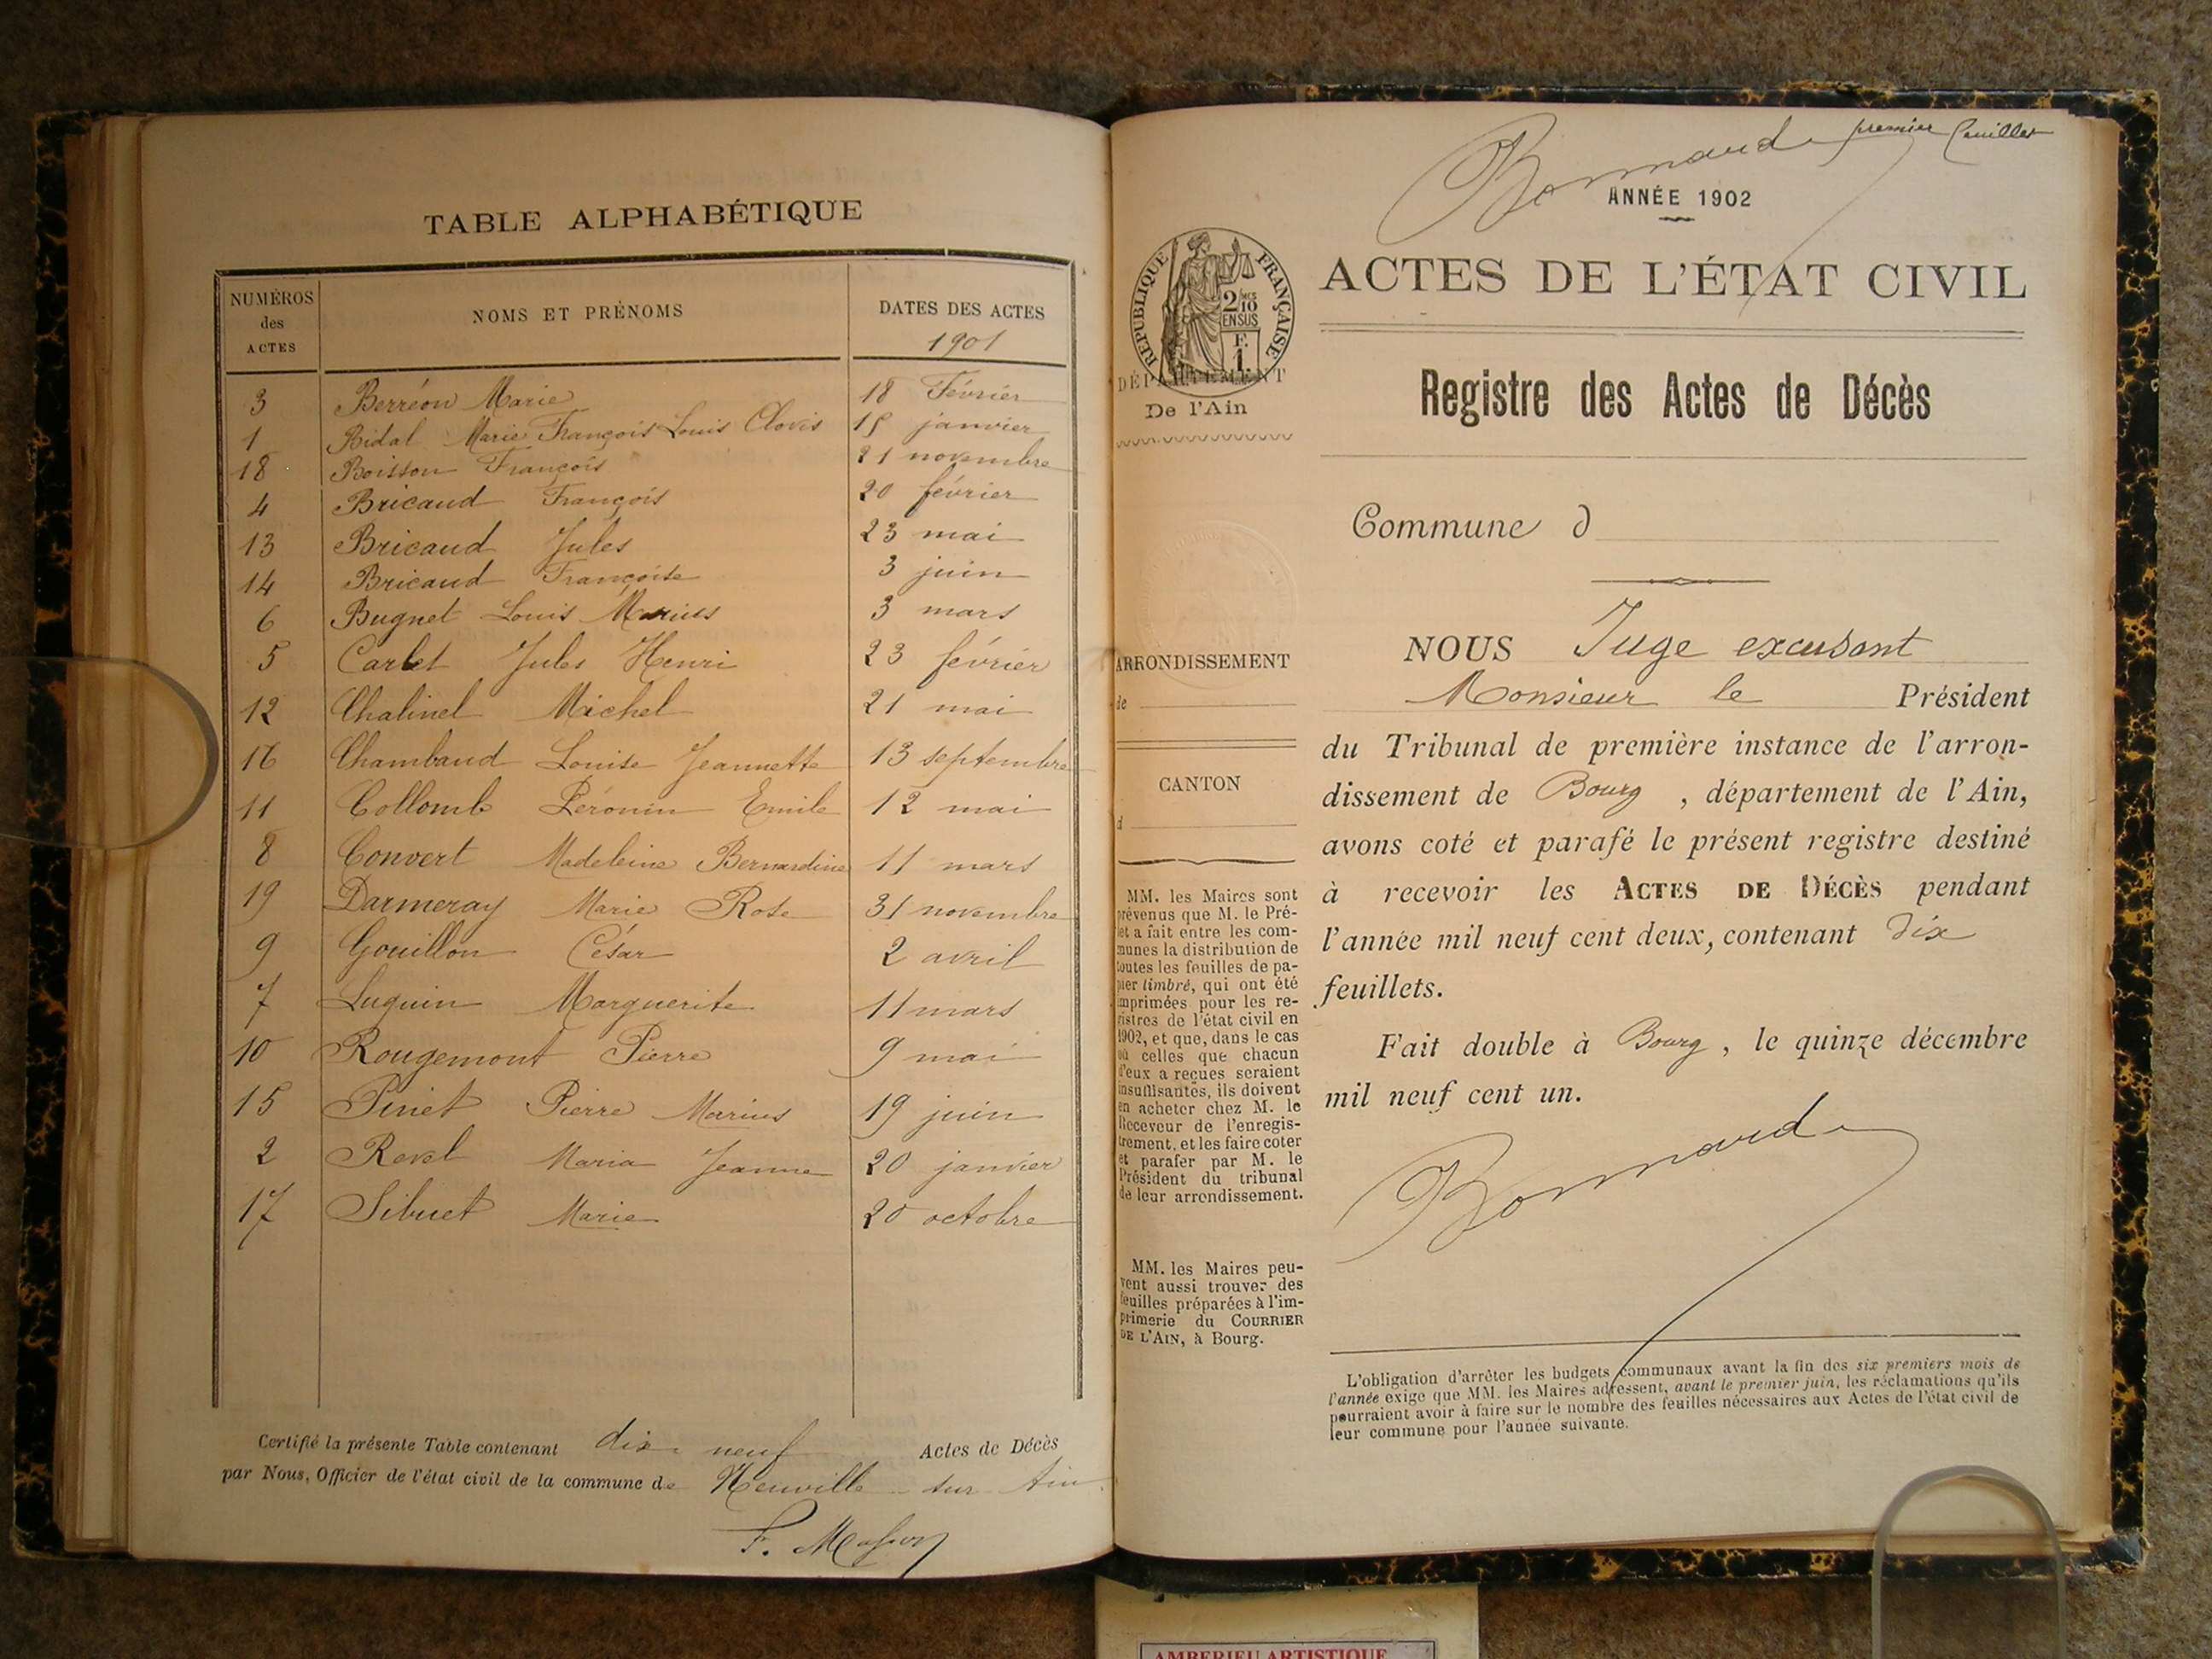 TABLE ALPHABÉTIQUE
NUMÉROS des ACTES
NOMS ET PRÉNOMS
DATES DES ACTES
1901
3 Berréon Marie 18 Février
1 Bidal Marie François Louis Clovis 15 janvier
18 Boisson François 21 novembre
4 Bricaud François 20 février
13 Bricaud Jules 23 mai
14 Bricaud Françoise 3 juin
6 Bugnet Louis Marius 3 mars
5 Carlet Jules Henri 23 février
12 Chalinel Michel 21 mai
16 Chambaud Louise Jeannette 13 septembre
11 Collomb Péronin Emile 12 mai
8 Convert Madeleine Bernardine 11 mars
19 Darmeray Marie Rose 31 novembre
9 Gouillon César 2 avril
7 Luguin Marguerite 11 mars
10 Rougemont Pierre 9 mai
15 Pinet Pierre Marius 19 juin
2 Revel Maria Jeanne 20 janvier
17 Sibuet Marie 20 octobre
Certifié la présente Table contenant dix neuf Actes de Décès
par Nous, Officier de l'état civil de la commune de Neuville sur Ain.
F. Masson
Bonnard premier feuillet
ANNÉE 1902
RÉPUBLIQUE FRANÇAISE
2/10 EN SUS
F. 1.
DÉPARTEMENT
De l'Ain
ACTES DE L'ÉTAT CIVIL
Registre des Actes de Décès
Commune d
ARRONDISSEMENT
de
CANTON
d
MM. les Maires sont
prévenus que M. le Pré-
fet a fait entre les com-
munes la distribution de
toutes les feuilles de pa-
pier timbré, qui ont été
imprimées pour les re-
gistres de l'état civil en
1902, et que, dans le cas
où celles que chacun
d'eux a reçues seraient
insuffisantes, ils doivent
en acheter chez M. le
Receveur de l'enregis-
trement, et les faire coter
et parafer par M. le
Président du tribunal
de leur arrondissement.
MM. les Maires peu-
vent aussi trouver des
feuilles préparées à l'im-
primerie du COURRIER
DE L'AIN, à Bourg.
NOUS Juge excusant
Monsieur le Président
du Tribunal de première instance de l'arron-
dissement de Bourg , département de l'Ain,
avons coté et parafé le présent registre destiné
à recevoir les ACTES DE DÉCÈS pendant
l'année mil neuf cent deux, contenant dix
feuillets.
Fait double à Bourg , le quinze décembre
mil neuf cent un.
Bonnard
L'obligation d'arrêter les budgets communaux avant la fin des six premiers mois de
l'année exige que MM. les Maires adressent, avant le premier juin, les réclamations qu'ils
pourraient avoir à faire sur le nombre des feuilles nécessaires aux Actes de l'état civil de
leur commune pour l'année suivante.
AMBERIEU ARTISTIQUE